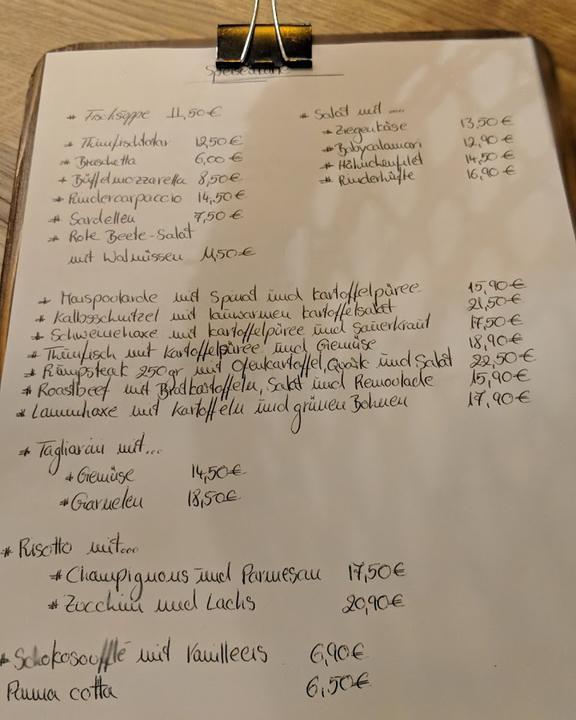 Speisekarte
* Fischsuppe 11,50€
* Thunfischtatar 12,50€
* Bruschetta 6,00€
* Büffelmozzarella 8,50€
* Rindercarpaccio 14,50€
* Sardellen 7,50€
* Rote Beete-Salat
mit Walnüssen 11,50€
* Salat mit ....
* Ziegenkäse 13,50€
* Babycalamari 12,90€
* Hähnchenfilet 14,50€
* Rinderhüfte 16,90€
* Maispoularde mit Spinat und Kartoffelpüree 15,90€
* Kalbsschnitzel mit lauwarmen Kartoffelsalat 21,50€
* Schweinehaxe mit Kartoffelpüree und Sauerkraut 17,50€
* Thunfisch mit Kartoffelpüree und Gemüse 18,90€
* Rumpsteak 250gr mit Ofenkartoffel, Quark und Salat 22,50€
* Roastbeef mit Bratkartoffeln, Salat und Remoulade 15,90€
* Lammhaxe mit Kartoffeln und grünen Bohnen 17,90€
* Tagliarini mit...
* Gemüse 14,50€
* Garnelen 18,50€
* Risotto mit...
* Champignons und Parmesan 17,50€
* Zucchini und Lachs 20,90€
* Schokosoufflé mit Vanilleeis 6,90€
Panna cotta 6,50€